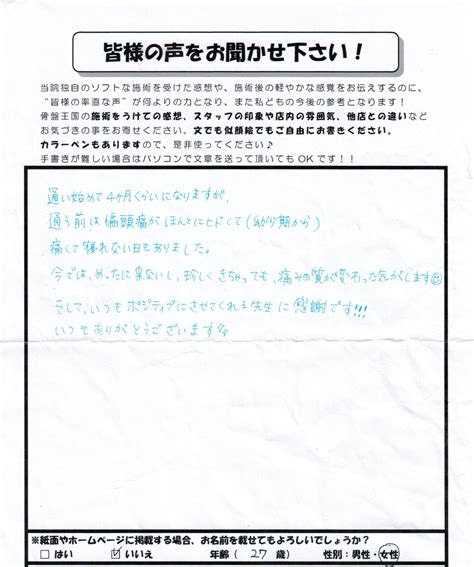 皆様の声をお聞かせ下さい！
当院独自のソフトな施術を受けた感想や、施術後の軽やかな感覚をお伝えするのに、
“皆様の率直な声”が何よりの力となり、また私どもの今後の参考となります！
骨盤王国の施術をうけての感想、スタッフの印象や店内の雰囲気、他店との違いなど
お気づきの事をお寄せください。文でも似顔絵でもご自由にお書きください。
カラーペンもありますので、是非使ってください♪
手書きが難しい場合はパソコンで文章を送って頂いてもＯＫです！！
通い始めて4ヶ月くらいになりますが、
通う前は偏頭痛がほんとにヒドくて(幼少期から)
痛くて寝れない日もありました。
今では、めったに来ないし、珍しくきちゃっても、痛みの質が変わった気がします☺
そして、いつもポジティブにさせてくれる先生に感謝です!!!
いつもありがとうございます
※紙面やホームページに掲載する場合、お名前を載せてもよろしいでしょうか？
□ はい ☑ いいえ 年齢（ 27 歳） 性別：男性・女性